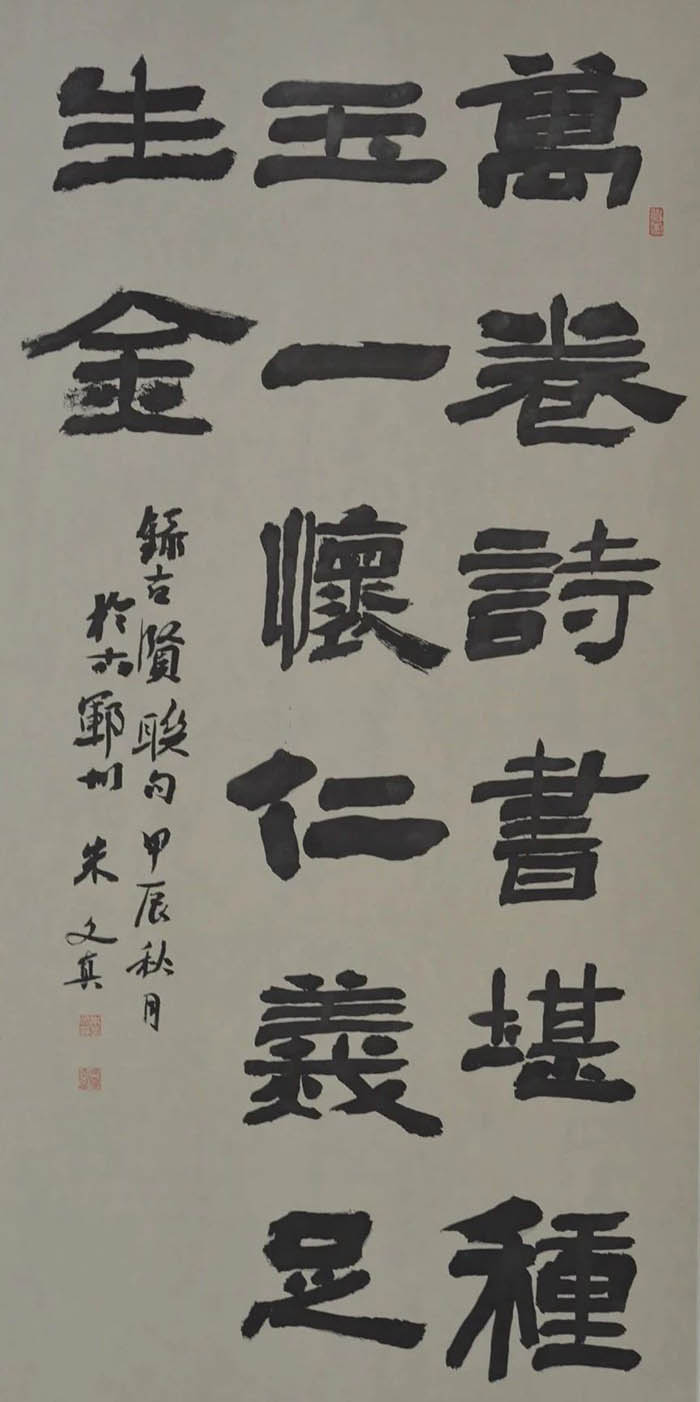 萬卷詩書堪種
玉一懷仁義足
生金
錄古賢聯句甲辰秋月
於鄆州朱文真